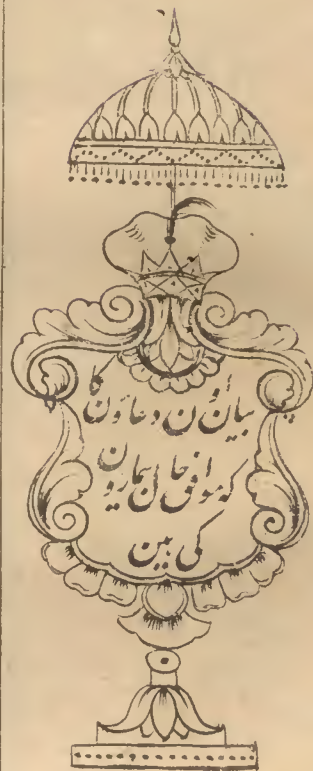 بیان اون دعاؤن کا
که موافق حال بیمارون
کی ہین